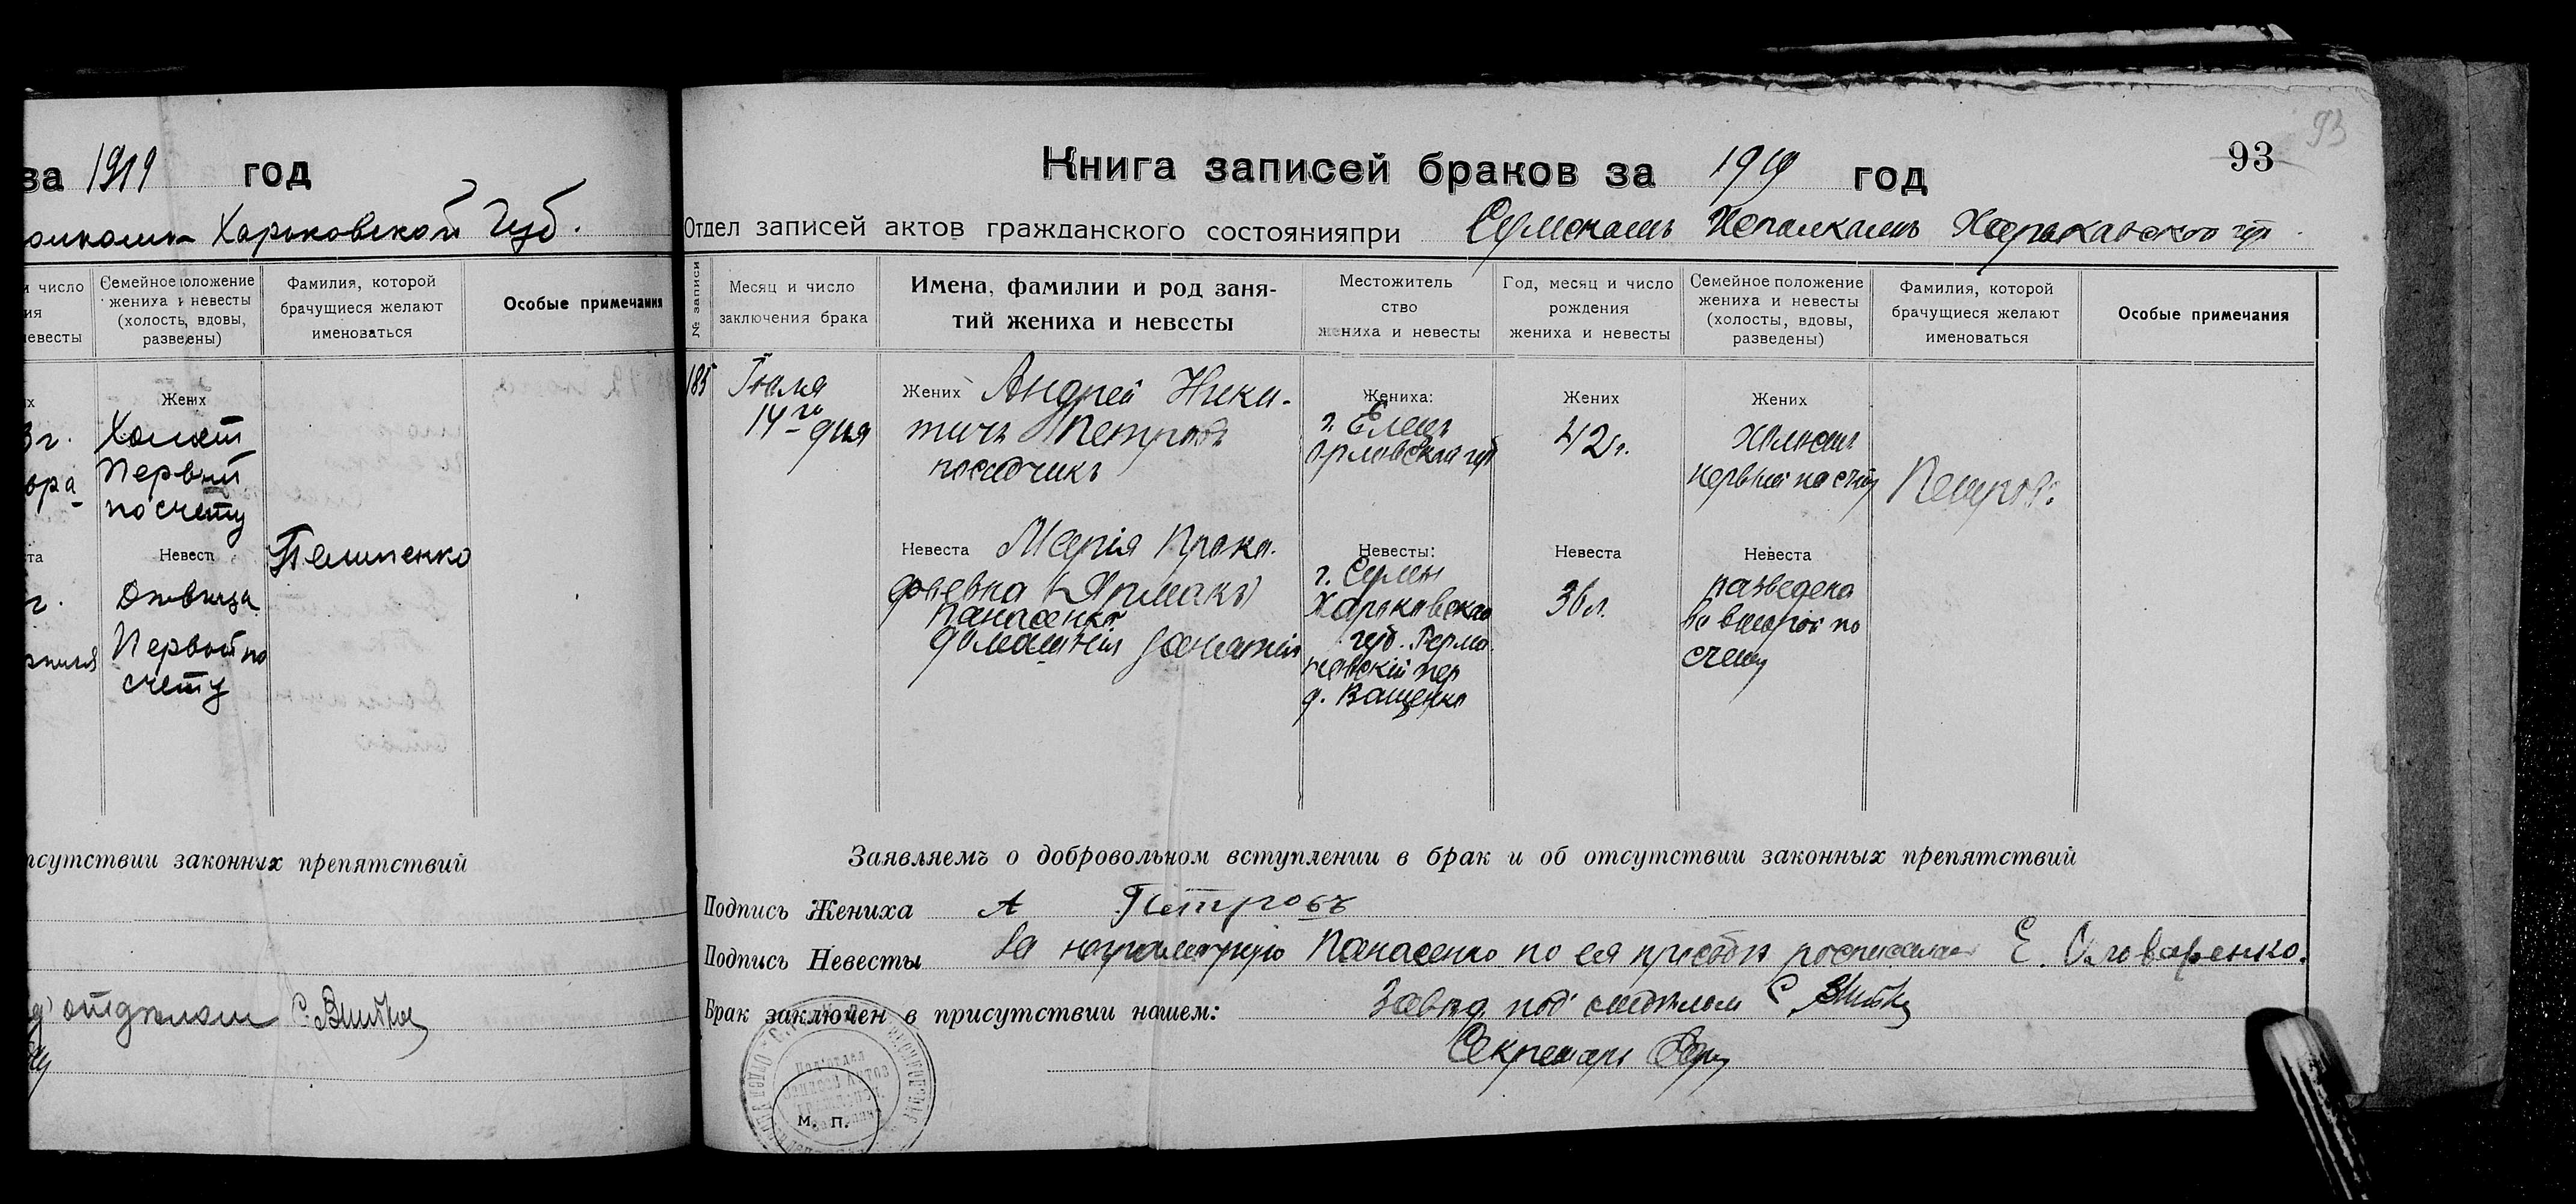 за 1919 год
Харьковской Губ.
и число
невесты
Семейное положение
жениха и невесты
(холосты, вдовы,
разведены)
Фамилия, которой
брачущиеся желают
именоваться
Особые примечания
Жених
Холост
Первый
по счету
Невест
Девица
Первой по
счету
отсутствии законных препятствий
93
93
Книга записей браков за 1919 год
Отдел записей актов гражданского состоянияпри Сумском Исполкоме Харьковской губ.
№ записи
Месяц и число
заключения брака
Имена, фамилии и род заня-
тий жениха и невесты
Местожитель
ство
жениха и невесты
Год, месяц и число
рождения
жениха и невесты
Семейное положение
жениха и невесты
(холосты, вдовы,
разведены)
Фамилия, которой
брачущиеся желают
именоваться
Особые примечания
185
Июля
14го дня
Жених Андрей Ники-
тич Петровъ
посадчикъ
Жениха:
г. Елец
Орловской губ
Жених
42 г.
Жених
холост
первый по счету
Петров.
Невеста Марія Проко-
фьевна (Ярмакъ)
Панасенко
домашнія занятія
Невесты:
г. Сумы
Харьковской
губ.
пер
д. Ващенко
Невеста
36 л.
Невеста
разведена
во второй по
счету
Заявляемъ о добровольном вступлении в брак и об отсутствии законных препятствий
Подпись Жениха А Петровъ
Подпись Невесты За неграмотную Панасенко по ея просьбе росписалась Е.
Брак заключен в присутствии нашем: Завед. под
Секретарь
М. П.